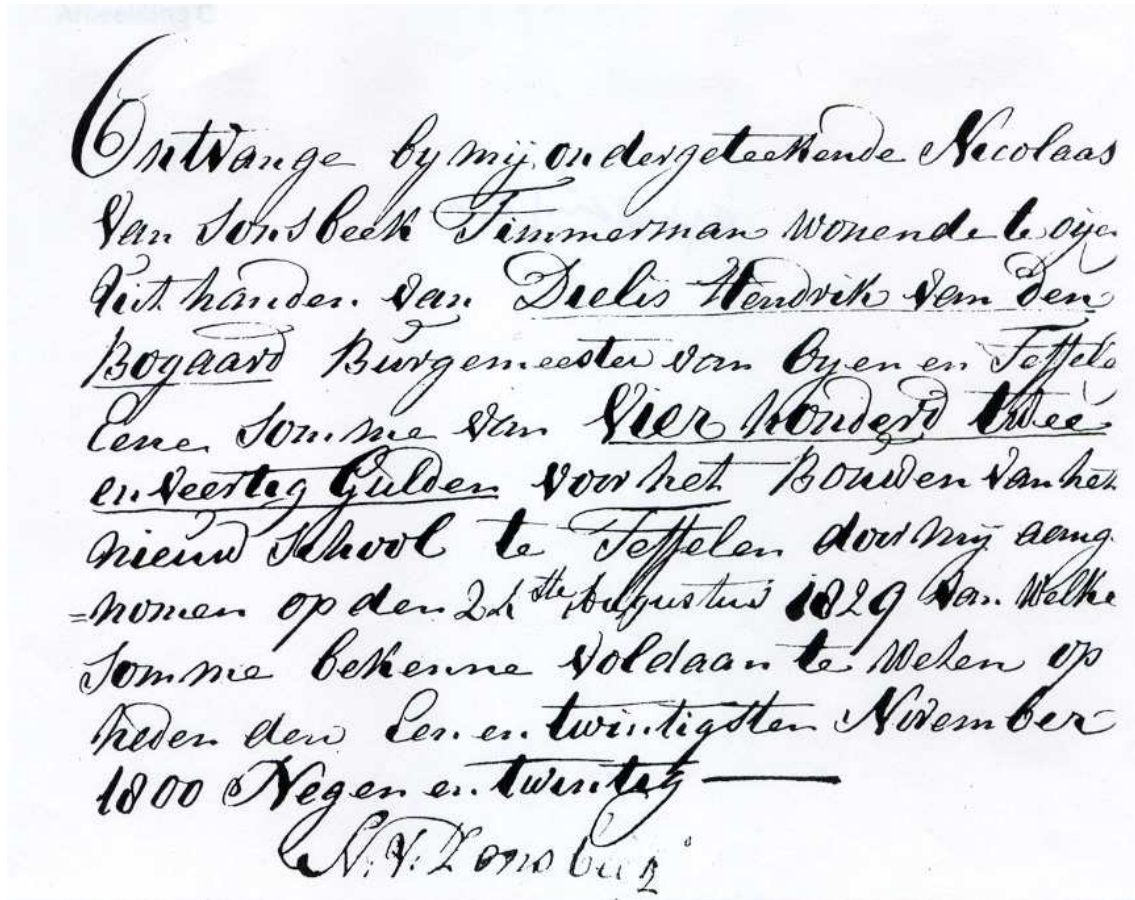 Ontvange by mij ondergeteekende Nicolaas
van Sonsbeek Timmerman wonende te oijen
uit handen van Dielis Hendrik van den
Bogaard Burgemeester van Oyen en Teffele
Eene somme van Vier honderd twee
en veertig Gulden voor het Bouwen van het
nieuw School te Teffelen door mij aeng
=nomen op den 24ste Augustus 1829 van welke
somme bekenne voldaan te weten op
heden den Een en twintigsten November
1800 Negen en twintig
N: V: Zonsbeek